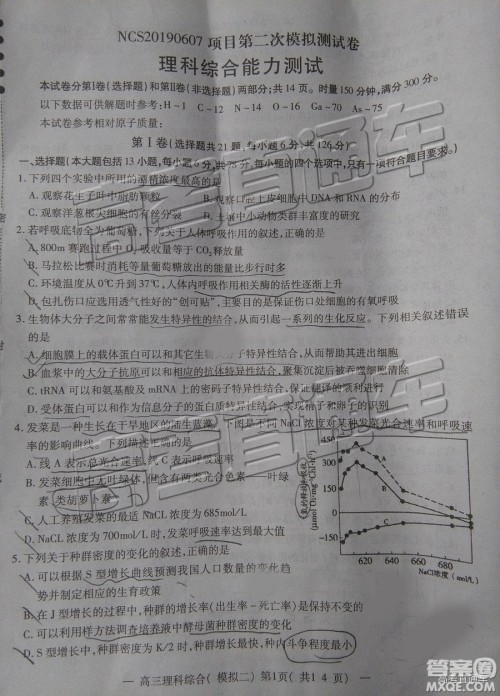 NCS20190607 项目第二次模拟测试卷
理科综合能力测试
本试卷分第Ⅰ卷(选择题)和第Ⅱ卷(非选择题)两部分;共14页。时量150分钟,满分300分。
以下数据可供解题时参考: H~1 C~12 N~14 O~16 Ga~70 As~75
本试卷参考相对原子质量:
第Ⅰ卷(选择题共21题,每小题6分,共126分)
一、选择题(本大题包括13小题,每小题6分,共78分,每小题的四个选项中,只有一项符合题目要求。)
1.下列四个实验中所用的酒精浓度最高的是
A.观察花生子叶中脂肪颗粒
C.观察洋葱根尖细胞的有丝分裂 D.土壤中小动物类群丰富度的研究
2.若呼吸底物全为葡萄糖,下列关于人体呼吸作用的叙述,正确的是
A.800m赛跑过程中O₂吸收量等于CO₂释放量
B.马拉松比赛时消耗等量葡萄糖放出的能量比步行时多
C.环境温度升到37℃,人体内呼吸作用相关酶的活性逐渐上升
D.包扎外伤口应选用透气性好的“创可贴”,主要目的是保证伤口处细胞的有氧呼吸
3.生物体大分子之间常常能发生特异性的结合,从而引起一系列的生化反应。下列相关叙述错误
的是
A.细胞膜上的载体蛋白可以和其它生物大分子特异性结合,从而实现物质的运输
B.血浆中的大分子抗原可以和相应的抗体特异性结合,聚集沉淀后被吞噬细胞清除
C.tRNA可以和氨基酸及mRNA上的密码子特异性结合,保证翻译的正常进行
4.发菜是一种生长在干旱地区的陆生蓝藻。下图是不同NaCl浓度对某种发菜光合速率和呼吸速
率的影响曲线。下列相关叙述错误的是
A.线A表示总光合速率,线C表示呼吸速率
B.发菜细胞中无叶绿体,但含有两类光合色素一
素、类胡萝卜素
C.人工养殖发菜的最适NaCl浓度为685mol/L
D.NaCl浓度为700mol/L时,发菜呼吸速率达到最大值
A
B
C
620 640 660 680
NaCl浓度(mol/L)
5.下列关于种群密度的变化的叙述,正确的是
A.可以根据S型增长曲线预测我国人口数量的变化趋
势并制定相应的生育政策
B.在J型增长过程中,种群的增长率(出生率-死亡率)是保持不变的
C.可以利用样方法调查培养液中酵母菌种群数量的变化
D.在S型增长过程中,种群密度为K/2时,种群增长最快,种内斗争程度最小
— 高三理科综合(模拟二)第1页(共14页)—